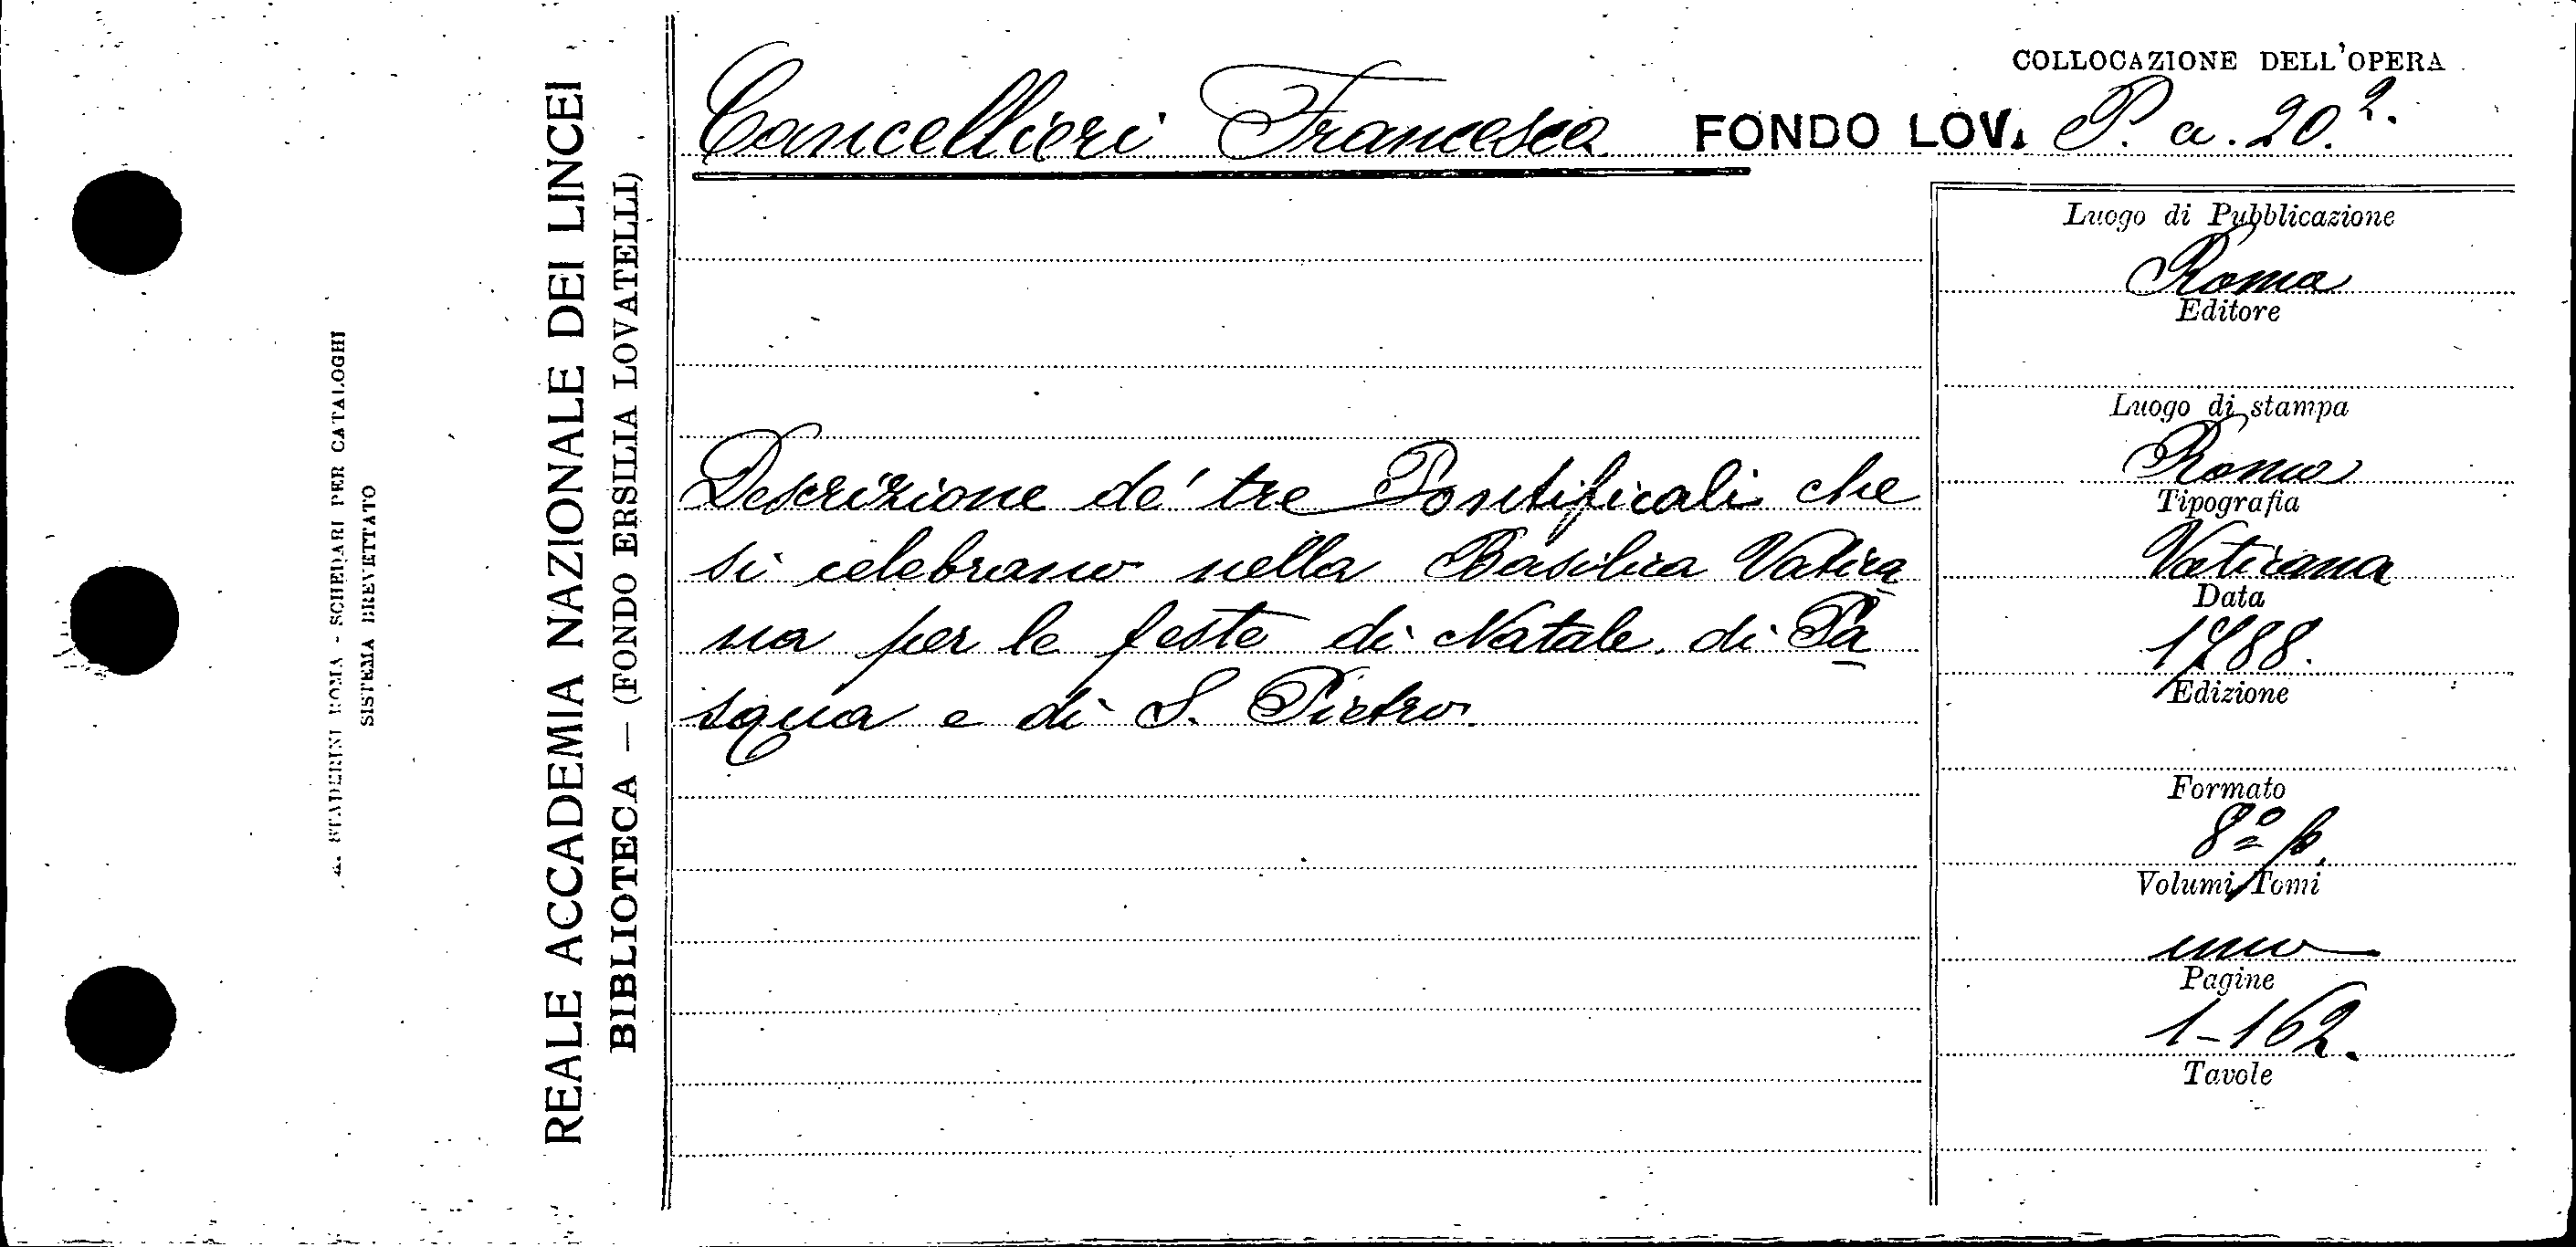 COLLOCAZIONE DELL'OPERA
Cancellieri Francesco FONDO LOV. P. a. 20.²
Descrizione de' tre Pontificali che
si celebrano nella Basilica Vatica
na per le feste di Natale, di Pa
squa e di S. Pietro.
Luogo di Pubblicazione
Roma
Editore
Luogo di stampa
Roma
Tipografia
Vaticana
Data
1788.
Edizione
Formato
8º p.
Volumi/Tomi
uno
Pagine
1-162.
Tavole
REALE ACCADEMIA NAZIONALE DEI LINCEI
BIBLIOTECA — (FONDO ERSILIA LOVATELLI)
A. STADERINI ROMA - SCHEDARI PER CATALOGHI
SISTEMA BREVETTATO